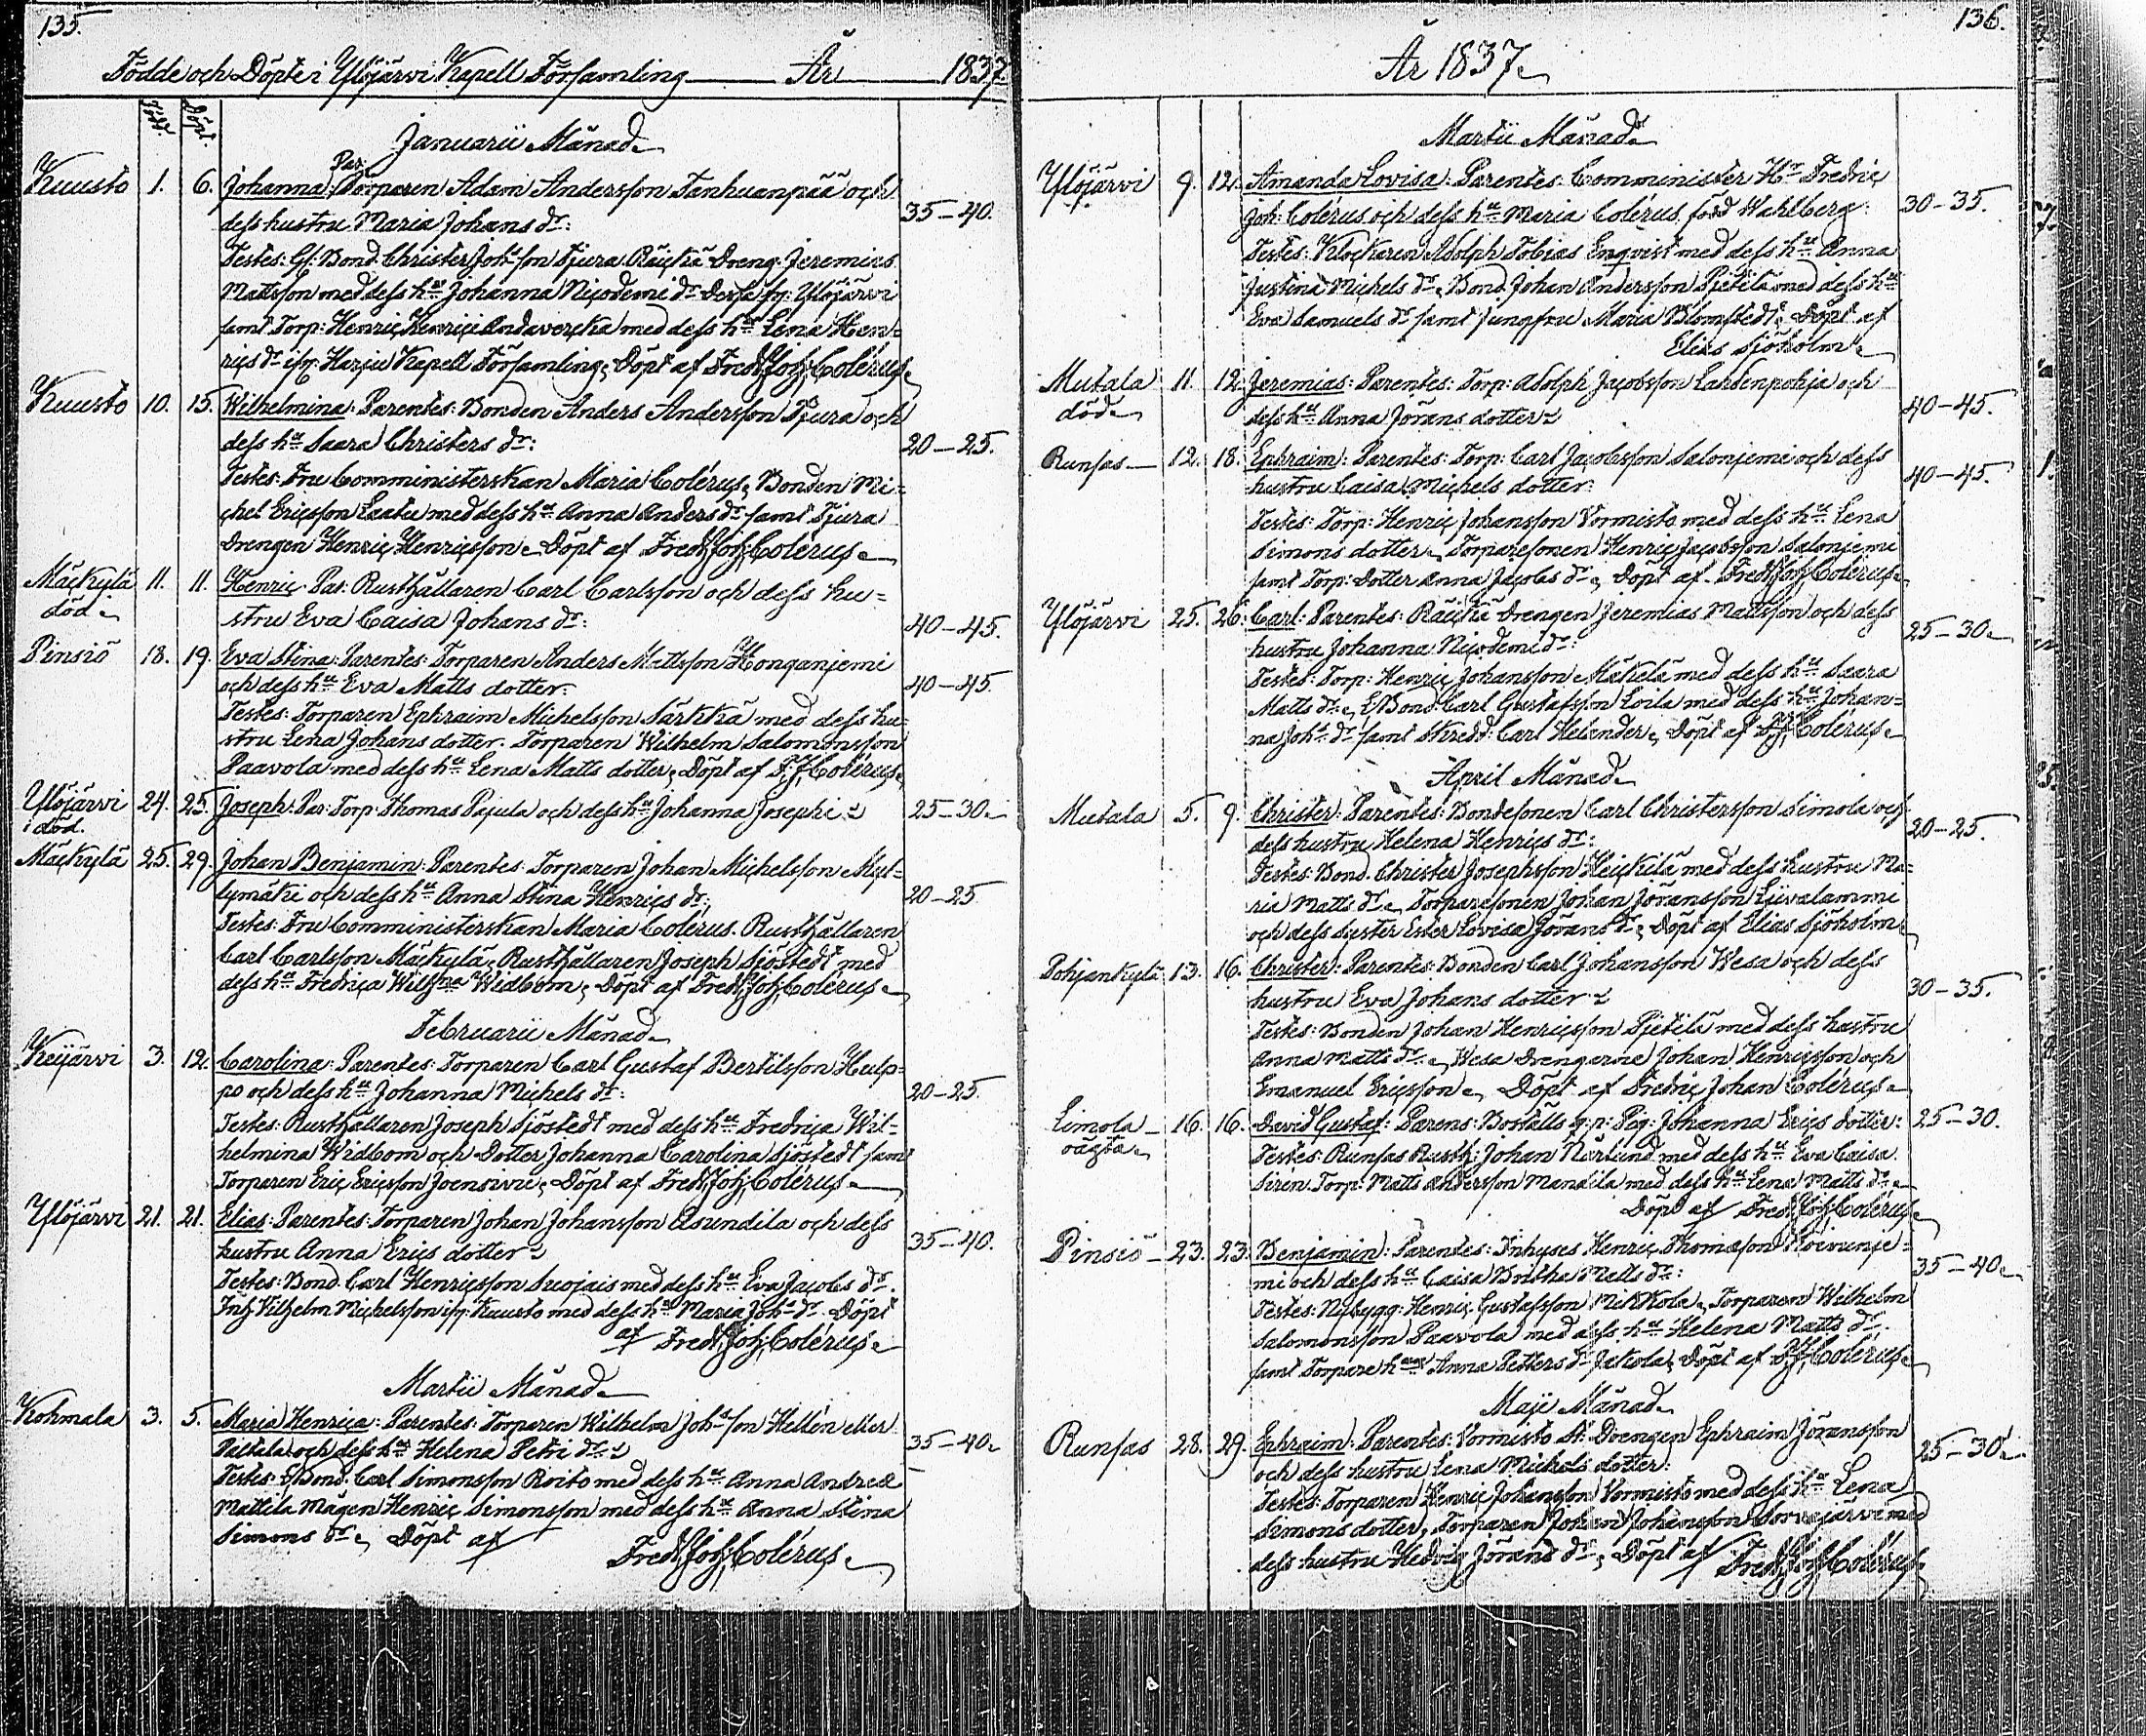 135.
Födde och Döpte i Ylöjärvi Kapell Församling År 1837
Född. Döpt.
Januarii Månad.
Par:
Kuusto 1. 6. Johanna: Torparen Adam Andersson Tanhuanpää och
dess hustru Maria Johans dr: 35-40.
Testes: Gl: Bond. Christer Joh:son Tjura Räickä Dreng Jeremias
Mattsson med dess hu Johanna Nicodemi dr Dessa fr: Ylöjärvi
samt Torp: Henric Henrici med dess hu Lena Hen=
rics dr ifr: Harju Kapell Församling, Döpt af Fredr. Joh. Colérus.
Kuusto 10. 15. Wilhelmina: Parentes: Bonden Anders Andersson Tjura och
dess hu Saara Christers dr: 20-25.
Testes: Fru Comministerskan Maria Colérus, Bonden Mi=
chel Ericsson Laatu med dess hu Anna Anders dr samt Tjura
Drengen Henric Henricsson. Döpt af Fredr. Joh. Colérus.
Mäckylä 11. 11. Henric. Par: Rusthållaren Carl Carlsson och dess hu=
död. stru Eva Caisa Johans dr: 40-45.
Pinsiö 18. 19. Eva Stina: Parentes: Torparen Anders Mattsson Honganjemi
och dess hu Eva Matts dotter: 40-45.
Testes: Torparen Ephraim Michelsson Särkkä med dess hu=
stru Lena Johans dotter. Torparen Wilhelm Salomonsson
Paavola med dess hu Lena Matts dotter, Döpt af F. J. Colérus.
Ylöjärvi 24. 25. Joseph: Par: Torp: Thomas Pajula och dess hu Johanna Josephi 25-30.
död.
Mäckylä 25. 29. Johan Benjamin: Parentes: Torparen Johan Michelsson Myl=
lymäki och dess hu Anna Stina Henrics dr: 20-25
Testes: Fru Comministerskan Maria Colérus. Rusthållaren
Carl Carlsson Mäckylä, Rusthållaren Joseph Sjöstedt med
dess hu Fredrica Wilhna Widbom, Döpt af Fredr. Joh. Colérus.
Februarii Månad.
Keijärvi 3. 12. Carolina: Parentes: Torparen Carl Gustaf Bertilsson Hulp=
po och dess hu Johanna Michels dr: 20-25.
Testes: Rusthållaren Joseph Sjöstedt med dess hu Fredrica Wil=
helmina Widbom och Dotter Johanna Carolina Sjöstedt samt
Torparen Eric Ericsson Joensuu, Döpt af Fredr. Joh. Colérus.
Ylöjärvi 21. 21. Elias: Parentes: Torparen Johan Johansson Asundila och dess
hustru Anna Erics dotter 35-40.
Testes: Bond. Carl Henricsson med dess hu Eva Jacobs dr.
Inh. Vilhelm Michelsson ifr: Kuusto med dess hu Maria Joh: dr. Döpt
af Fredr. Joh. Colérus.
Martii Månad.
Kohmala 3. 5. Maria Henrica: Parentes: Torparen Wilhelm Joh:son Hellén eller
och dess hu Helena Petri dr: 35-40.
Testes: Bond. Carl Simonsson Roito med dess hu Anna Andreæ
Mattila Mågen Henric Simonsson med dess hu Anna Stina
Simons dr, Döpt af
Fredr. Joh. Colérus.
136.
År 1837.
Martii Månad
Ylöjärvi 9. 12. Amanda Lovisa: Parentes: Comminister Hr Fredric
Joh: Colérus och dess hu Maria Colérus född Wahlberg: 30-35.
Testes: Klockaren Adolph Tobias Enqvist med dess hu Anna
Justina Michels dr, Bond. Johan Andersson Pjetilä med dess hu
Eva Samuels dr samt Jungfru Maria Blomstedt, Döpt af
Elias Sjöholm.
Mutala 11. 12. Jeremias: Parentes: Torp: Adolph Jacobsson Lahdenpohja och
död. dess hu Anna Jörans dotter 40-45.
Runsas 12. 18. Ephraim: Parentes: Torp: Carl Jacobsson Salonjemi och dess
hustru Caisa Michels dotter: 40-45.
Testes: Torp: Henric Johansson Vormisto med dess hu Lena
Simons dotter, Torparesonen Henric Jacobsson Salonjemi
samt Torp: Dotter Anna Jacobs dr, Döpt af Fredr. Joh. Colérus.
Ylöjärvi 25. 26. Carl: Parentes: Räickä Drengen Jeremias Mattsson och dess
hustru Johanna Nicodemi dr: 25-30.
Testes: Torp: Henric Johansson Mäkelä med dess hu Saara
Matts dr, Bond. Carl Gustafsson Loila med dess hu Johan=
na Joh: dr samt Skredd: Carl Helander, Döpt af F. J. Colérus.
April Månad.
Mutala 5. 9. Christer: Parentes: Bondesonen Carl Christersson Simola och
dess hustru Helena Henrics dr: 20-25.
Testes: Bond. Christer Josephsson Heickilä med dess hustru Ma=
ria Matts dr, Torparesonen Johan Jöransson Lijvalammi
och dess syster Ester Lovisa Jörans dr, Döpt af Elias Sjöholm.
Pohjankylä 13. 16. Christer: Parentes: Bonden Carl Johansson Wesa och dess
hustru Eva Johans dotter 30-35.
Testes: Bonden Johan Henricsson Pjetilä med dess hustru
Anna Matts dr, Wesa Drengarne Johan Henricsson och
Emanuel Ericsson, Döpt af Fredric Johan Colérus.
Limola 16. 16. David Gustaf: Parens: Boställs Pig: Johanna Erics dotter: 25-30.
oägta. Testes: Runsas Rusth: Johan Närlund med dess hu Eva Caisa
Siren. Torp: Matts Andersson Mansila med dess hu Lena Matts dr.
Döpt af Fredr. Joh. Colérus.
Pinsiö 23. 23. Benjamin: Parentes: Inhyses Henric Thomasson Koivunje=
mi och dess hu Caisa Britha Matts dr: 35-40.
Testes: Nybygg: Henric Gustafsson Mikkola, Torparen Wilhelm
Salomonsson Paavola med dess hu Helena Matts dr.
samt Torpare hu Anna Petters dr Jskola, Döpt af F. J. Colérus.
Maji Månad.
Runsas 28. 29. Ephraim: Parentes: Vormisto St: Drengen Ephraim Jöransson
och dess hustru Lena Michels dotter: 25-30.
Testes: Torparen Henric Johansson Vormisto med dess hu Lena
Simons dotter, Torparen Johan Johansson Sorvajärvi med
dess hustru Hedvig Jörans dr, Döpt af Fredr. Joh. Colérus.